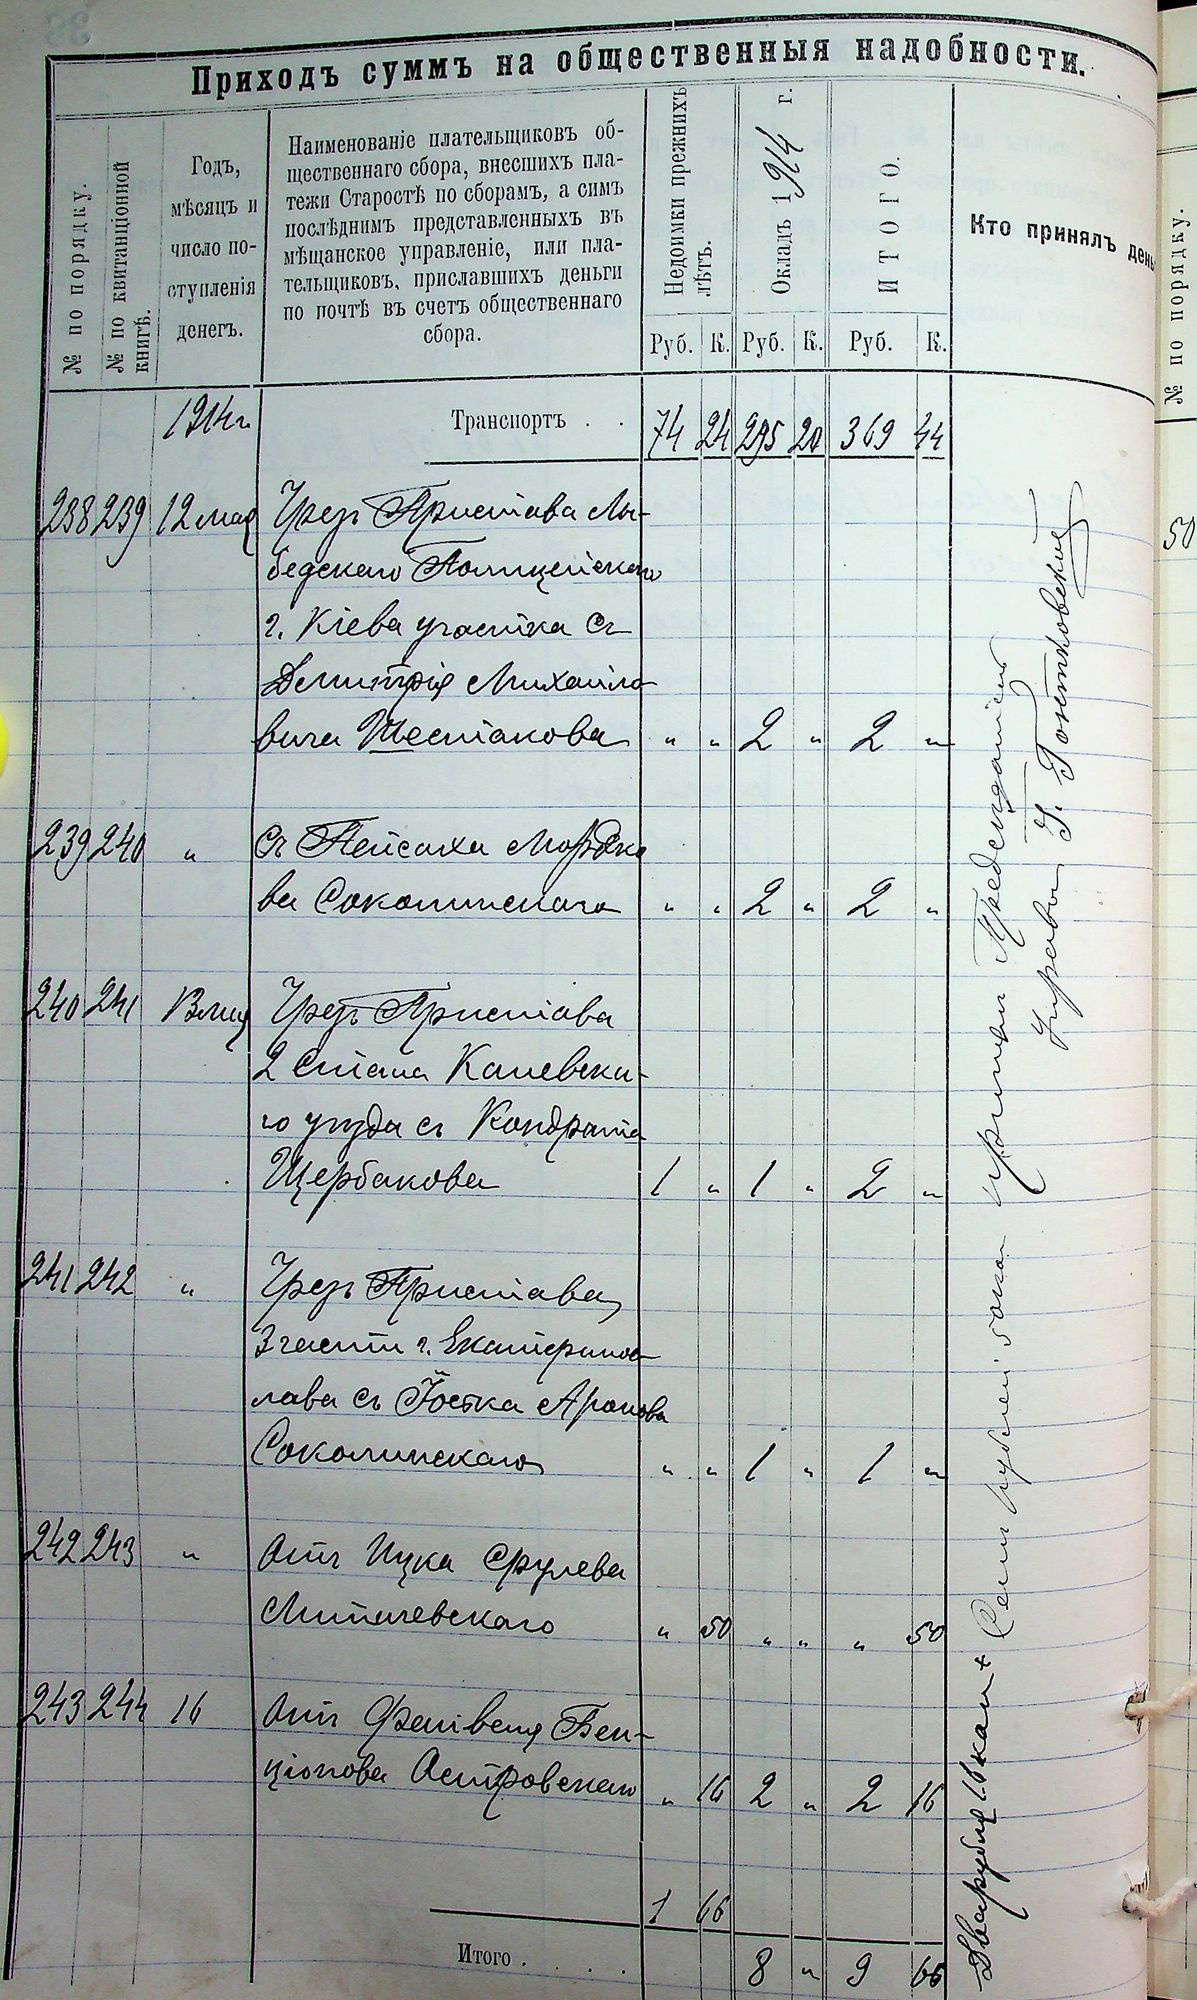 Приходъ суммъ на общественныя надобности.
№ по порядку.
№ по квитанціонной книгѣ.
Годъ,
мѣсяцъ и
число по-
ступленія
денегъ.
Наименованіе плательщиковъ об-
щественнаго сбора, внесшихъ пла-
тежи Старостѣ по сборамъ, а симъ
послѣднимъ представленныхъ въ
мѣщанское управленіе, или пла-
тельщиковъ, приславшихъ деньги
по почтѣ въ счетъ общественнаго
сбора.
Недоимки прежнихъ лѣтъ.
Окладъ 1914 г.
ИТОГО.
Кто принялъ день
Руб. К. Руб. К. Руб. К.
1914 г. Транспортъ . . 74 24 295 20 369 44
238 239 12 мая Чрезъ Пристава Лы-
бедскаго Полицейскаго
г. Кіева участка съ
Дмитрія Михайло-
вича Шестакова " " 2 " 2 "
239 240 " Съ Пейсаха Мордко
ва Соколинскаго " " 2 " 2 "
240 241 13 мая Чрезъ Пристава
2 Стана Каневска-
го уѣзда съ Кондрата
Щербакова 1 " 1 " 2 "
241 242 " Чрезъ Пристава
3 части г. Екатеринос-
лава съ Іоська Аронова
Соколинскаго " " 1 " 1 "
242 243 " Отъ Ицка Срулева
Литичевскаго " 50 " " " 50
243 244 16 Отъ Файвеля Бен-
ціонова Островскаго " 16 2 " 2 16
1 66
Итого . . . . 8 " 9 66
Два рубля 16 коп +
Семь рублей 50 коп принялъ Предсѣдатель
Управы
№ по порядку.
50